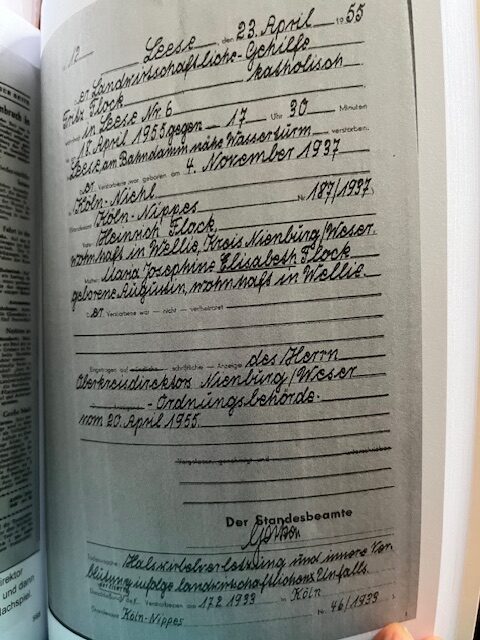 Nr. 12
Leese, den 23. April 1955
Der Landwirtschaftliche-Gehilfe
Fritz Flock katholisch
wohnhaft in Leese Nr. 6
ist am 18. April 1955 gegen 17 Uhr 30 Minuten
in Leese, am Bahndamm nähe Wasserturm verstorben.
Der Verstorbene war geboren am 4. November 1937
in Köln-Niehl
Standesamt Köln-Nippes Nr. 187/1937
Vater: Heinrich Flock,
wohnhaft in Wellie, Kreis Nienburg/Weser
Mutter: Maria Josephine Elisabeth Flock
geborene Augustin, wohnhaft in Wellie.
Der Verstorbene war — nicht — verheiratet
Eingetragen auf mündliche — schriftliche — Anzeige des Herrn
Oberkreisdirektors Nienburg/Weser
- Ordnungsbehörde-
vom 20. April 1955.
Vorgelesen, genehmigt und unterschrieben
Der Standesbeamte
Todesursache: Halswirbelverletzung und innere Ver-
blutung infolge landwirtschaftlichen Unfalls.
Eheschließung der Eltern des Verstorbenen am 17.2.1933 in Köln
Standesamt Köln-Nippes Nr. 46/1933
irektor
und dann
Nachspiel.